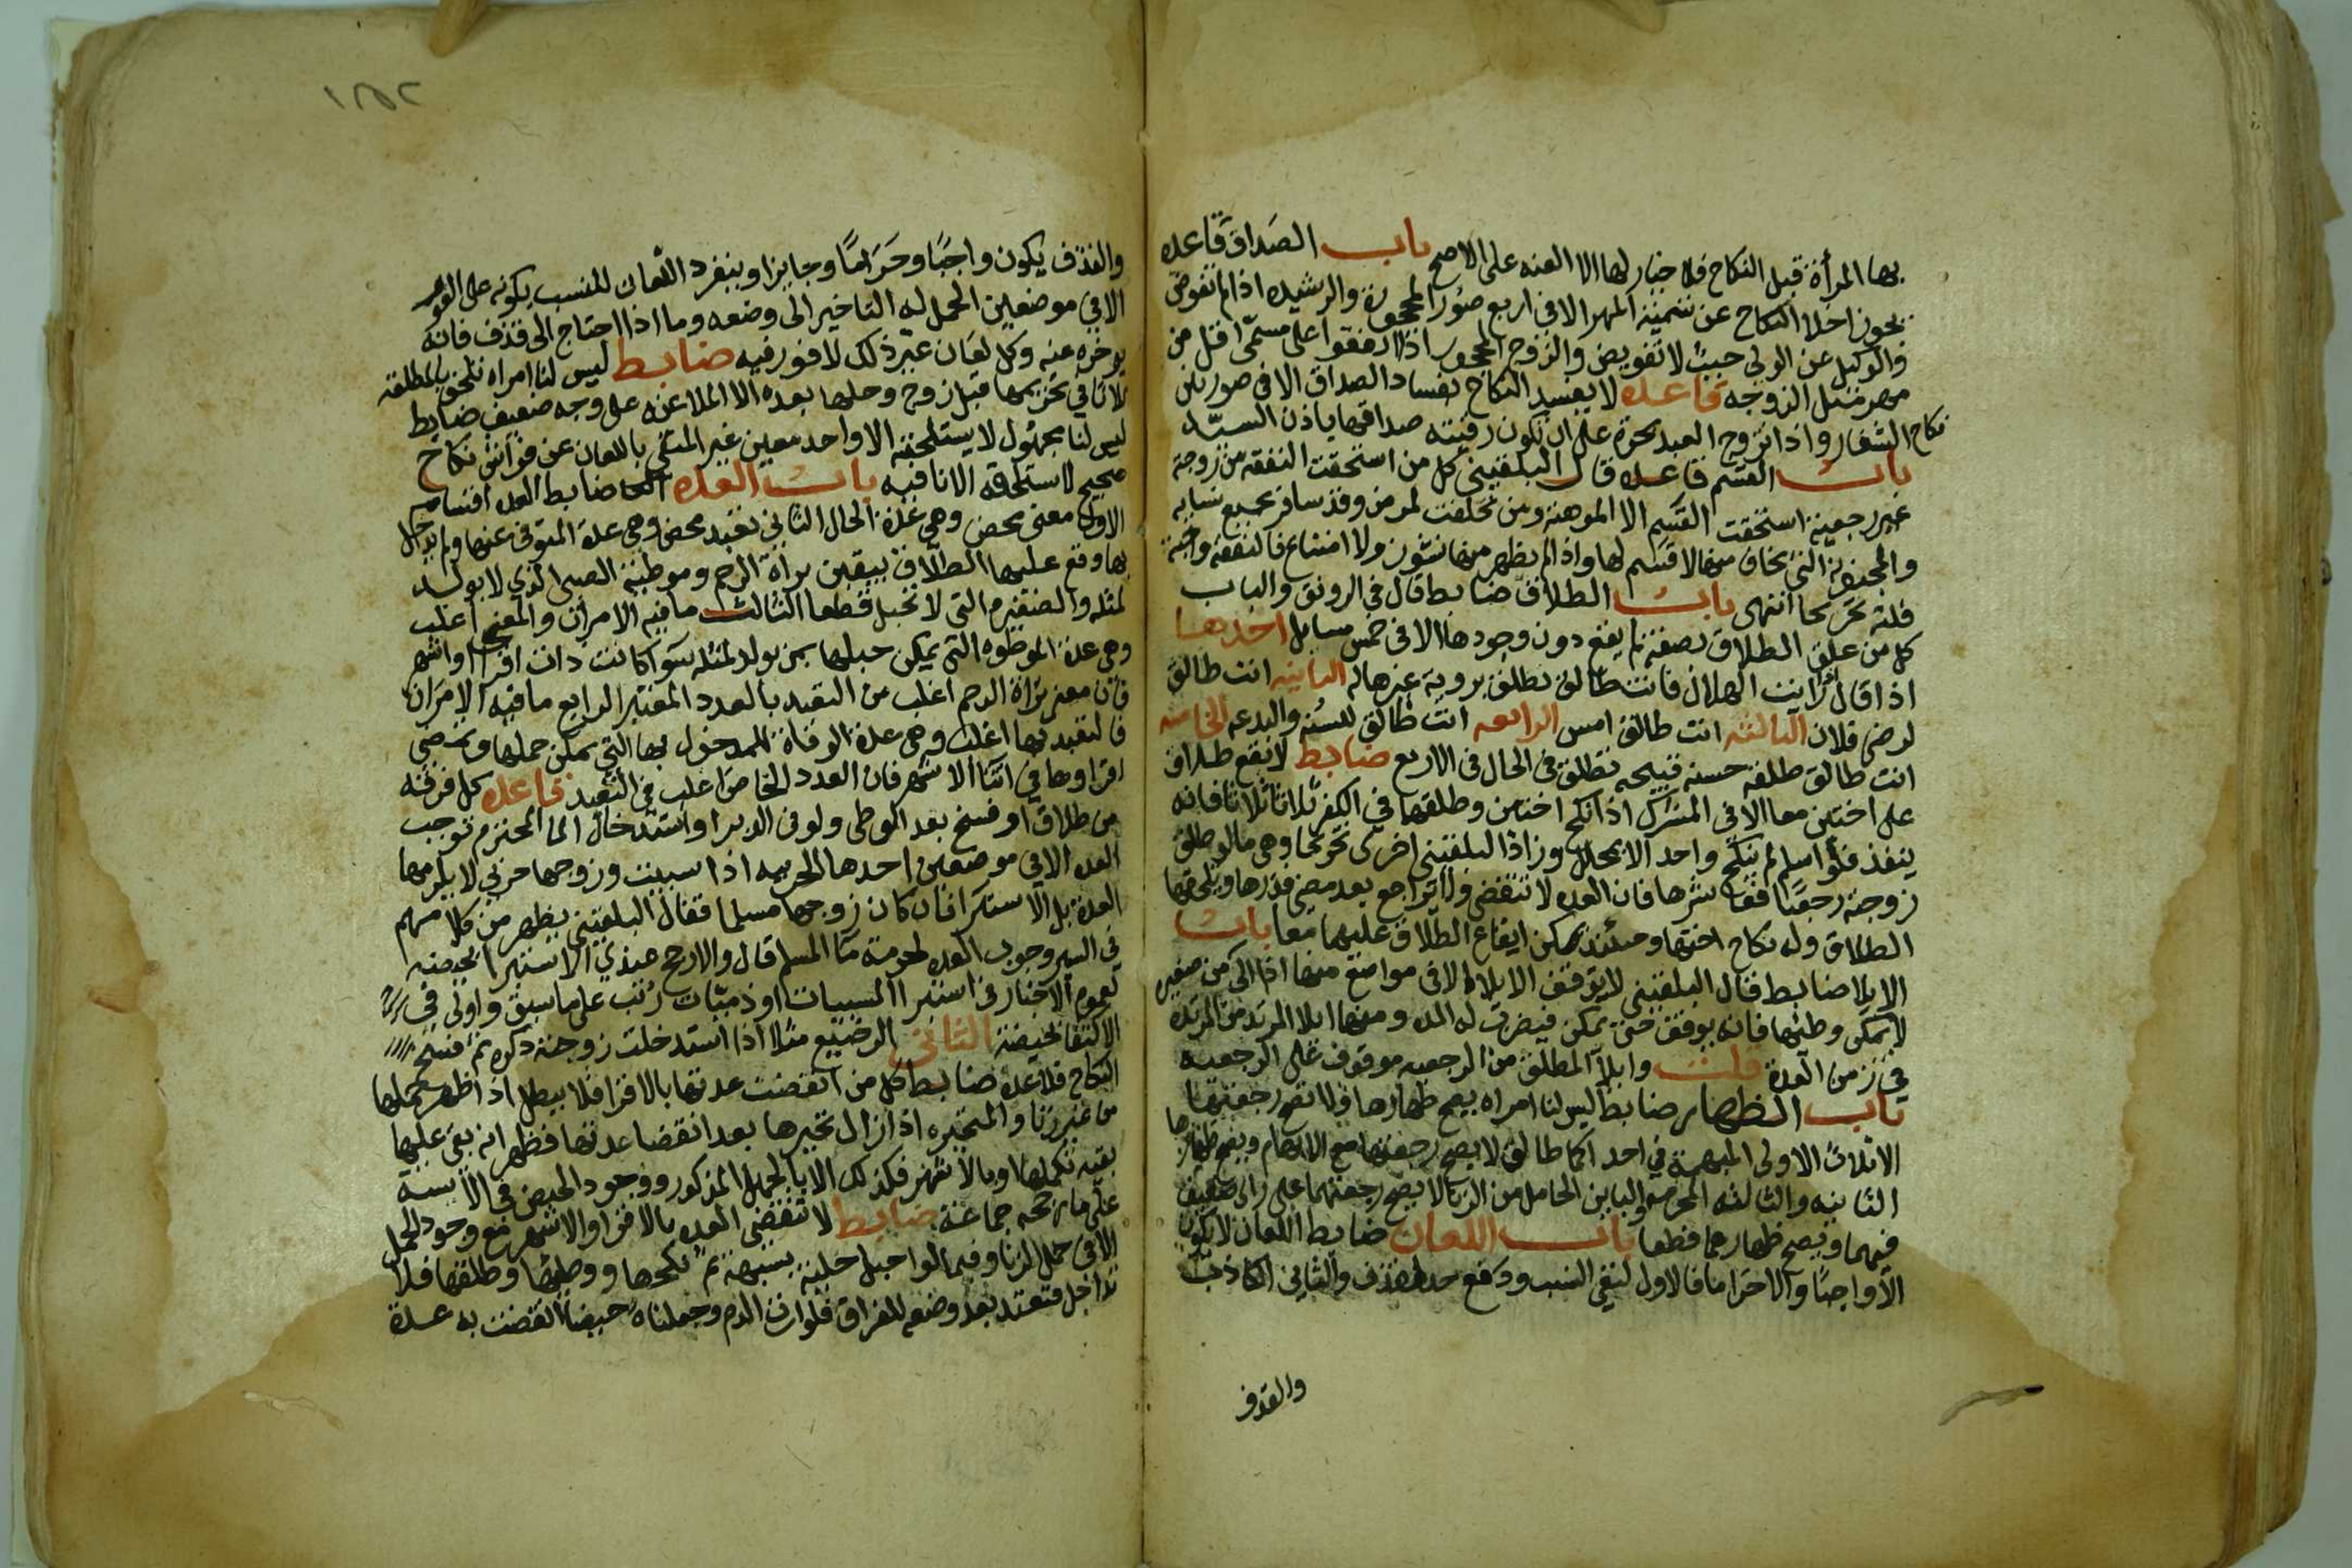 بها المرأة قبل النكاح فلا خيار لها الا العنه على الاصح باب الصداق قاعده
يجوز اخلا النكاح عن تسمية المهر الا في اربع صور المحجورة والرشيده اذا لم تفوض
والوكيل عن الولي حيث لا تفويض والزوج المحجور اذا اتفقوا على مسمى اقل من
مهر مثل الزوجه قاعده لا يفسد النكاح بفساد الصداق الا في صورتين
نكاح الشغار واذا تزوج العبد بحرة على ان تكون رقبته صداقها باذن السيد
باب القسم قاعده قال البلقيني كل من استحقت النفقه من زوجة
غير رجعية استحقت القسم الا الموهنة ومن تخلفت لمرض وقد سافر بجميع نسايه
والمجنونة التي يخاف منها لا قسم لها واذا لم يظهر منها نشوز ولا امتناع فالنفقه واجبة
قلته تخريجا انتهى باب الطلاق ضابط قال في الرونق واللباب
كل من علق الطلاق بصفة لم يقع دون وجودها الا في خمس مسايل احدها
اذا قال رايت الهلال فانت طالق تطلق بروية غيرها له الثانيه انت طالق
لرضى فلان الثالثه انت طالق امس الرابعه انت طالق للسنه والبدعه الخامسه
انت طالق طلقة حسنه قبيحه تطلق في الحال في الاربع ضابط لا يقع طلاق
على اختين معا الا في المشرك اذا نكح اختين وطلقها في الكفر ثلاثا ثلاثا فانه
ينفذ فلو اسلم لم ينكح واحد الا بمحلل وزاد البلقيني اخرى تخريجا وهي ما لو طلق
زوجته رجعيا فعاشرها فان العده لا تنقضي ولا يراجع بعد مضي قدرها ويلحقها
الطلاق وله نكاح اختها وحينئذ يمكن ايقاع الطلاق عليهما معا باب
الايلا ضابط قال البلقيني لا يتوقف الايلا الا في مواضع منها اذا الى من صغير
لا يمكن وطئها فانه يوقف حتى يمكن فيضرب له المده ومنها ايلا المرتد من المرتده
في زمن العدة قلت وايلا المطلق من الرجعيه موقوف على الرجعيه
باب الظهار ضابط ليس لنا امراه يصح ظهارها ولا تصح رجعتها
الا ثلاث الاولى المبهمة في احداكما طالق لا يصح رجعتها مع الابهام ويصح ظهارها
الثانيه والثالثه المحرمه والباين الحامل من الزنا لا يصح رجعتهما على راى ضعيف
فيهما ويصح ظهارهما قطعا باب اللعان ضابط اللعان لا يكون
الا واجبا والا حراما فالاول لنفي النسب ودفع حد القذف والثاني الكاذب
والقذف
والقذف يكون واجبا وحراما وجايزا وينفرد اللعان للنسب بكونه على الفور
الا في موضعين الحمل له التاخير الى وضعه وما اذا احتاج الى قذف فانه
يوخره عنه وكل لعان غير ذلك لا فور فيه ضابط ليس لنا امراه تلتحق بالمطلقة
ثلاثا في تحريمها قبل زوج وحلها بعده الا الملاعنه على وجه ضعيف ضابط
ليس لنا مجهول لا يستلحقه الا واحد معين غير المنفي باللعان عن فراش نكاح
صحيح لا ستلحاقه الا نافيه باب العده ضابط العده اقسام
الاول معنى محض وهي عدة الحال الثاني تعبد محض وهي عدة المتوفى عنها ولم يدخل
بها وقع عليها الطلاق بيقين براة الرحم وموطئة الصبي الذي لا يولد
لمثله والصغيرة التي لا تحبل قطعا الثالث ما فيه الامران والمعنى اغلب
وهي عدة الموطوه التي يمكن حبلها ممن يولد لمثله سوا كانت ذات اقرا او اشهر
فان معنى براة الرحم اغلب من التعبد بالعدد المعتبر الرابع ما فيه الامران
فالتعبد بها اغلب وهي عدة الوفاة للمدخول بها التي يمكن حملها وتمضي
اقراوها في اثنا الاشهر فان العدد الخاص اغلب في التعبد قاعده كل فرقة
من طلاق او فسخ بعد الوطي ولو في الدبر او استدخال الما المحترم توجب
العده الا في موضعين احدها الحربيه اذا سبيت وزوجها حربي لا يلزمها
العدة بل الاستبرا فان كان زوجها مسلما فقال البلقيني يظهر من كلامهم
في السير وجوب العده لحرمة ما المسلم قال والارجح عندي الاستبرا بحيضه
لعموم الاخبار في استبرا المسبيات او ذميات رتب على ما سبق واولى في
الاكتفا بحيضة الثاني الرضيع مثلا اذا استدخلت زوجته ذكره ثم فسخ
النكاح فلا عده ضابط كل من انقضت عدتها بالاقرا فلا يبطل اذا ظهر حملها
من غير زنا والمتحيره اذا زال تحيرها بعد انقضا عدتها فظهر انه بقي عليها
بقيه تكملها وبالاشهر فكذلك الا بالحمل المذكور ووجود الحيض في الآيسة
على ما رجحه جماعة ضابط لا تنقضي العده بالاقرا والاشهر مع وجود الحمل
الا في حمل الزنا وفيما لو احبل خلية بشبهة ثم نكحها ووطئها وطلقها فلا
تداخل فتعتد بعد وضعه للفراق فلو رات الدم وجعلناه حيضا انقضت به عدة